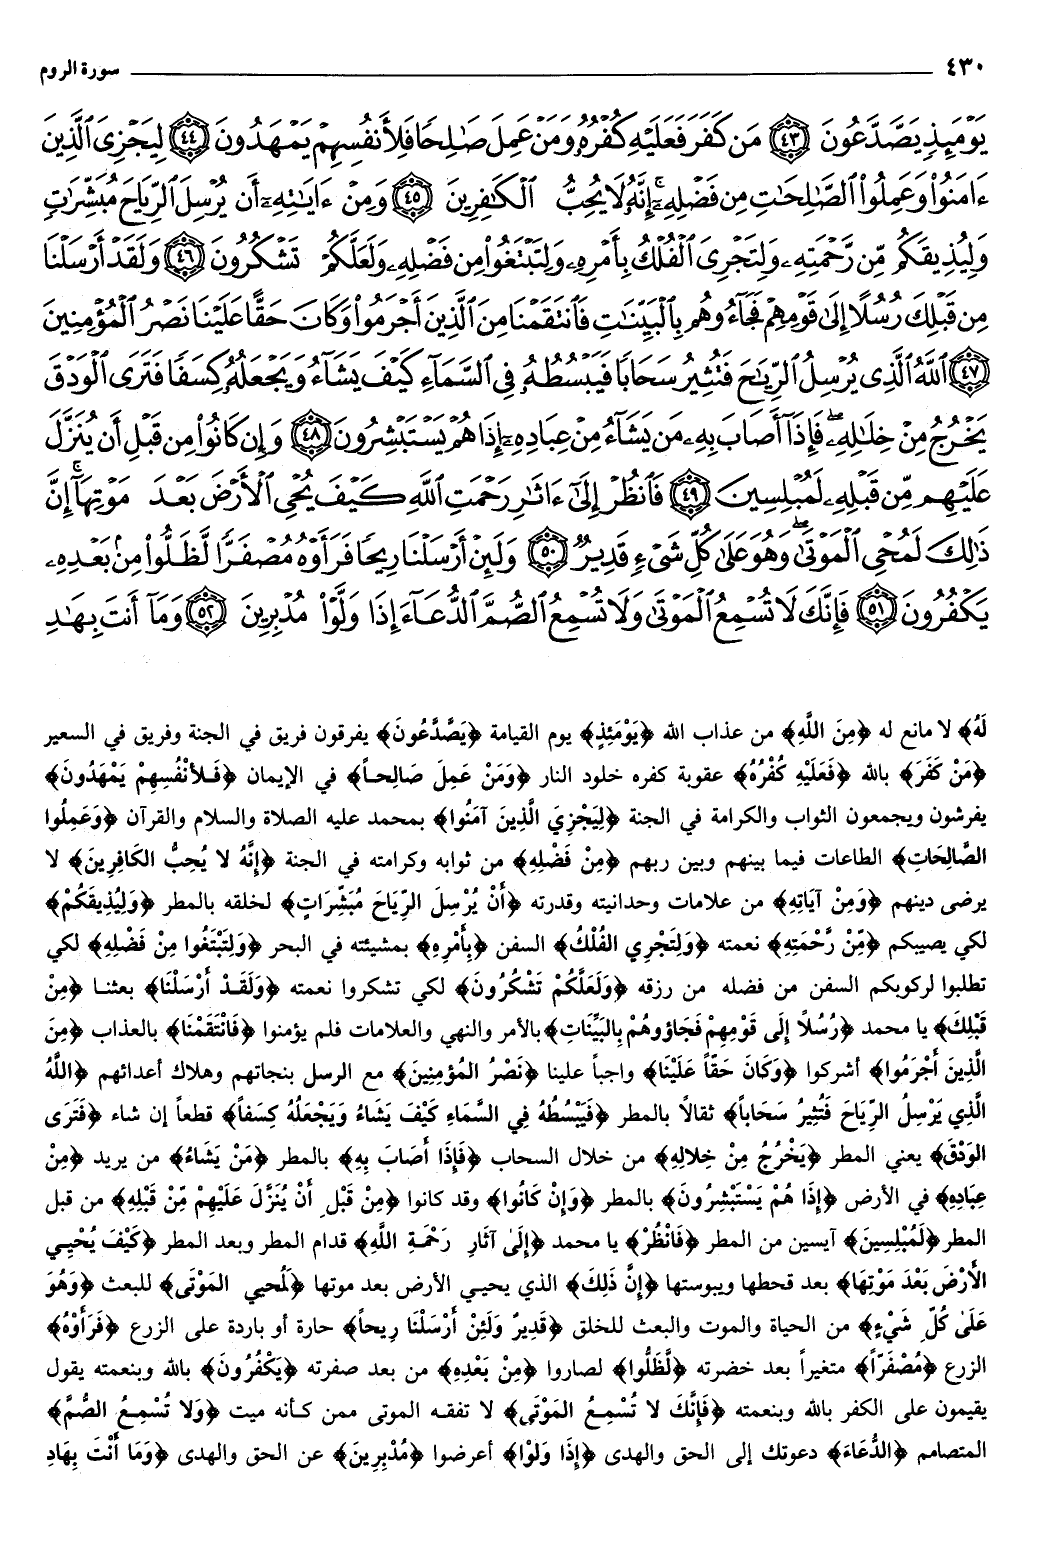 ٤٣٠ سورة الروم
يَوْمَئِذٍ يَصَّدَّعُونَ ﴿٤٣﴾ مَن كَفَرَ فَعَلَيْهِ كُفْرُهُۥ وَمَنْ عَمِلَ صَٰلِحًا فَلِأَنفُسِهِمْ يَمْهَدُونَ ﴿٤٤﴾ لِيَجْزِىَ ٱلَّذِينَ
ءَامَنُوا۟ وَعَمِلُوا۟ ٱلصَّٰلِحَٰتِ مِن فَضْلِهِۦٓ ۚ إِنَّهُۥ لَا يُحِبُّ ٱلْكَٰفِرِينَ ﴿٤٥﴾ وَمِنْ ءَايَٰتِهِۦٓ أَن يُرْسِلَ ٱلرِّيَاحَ مُبَشِّرَٰتٍ
وَلِيُذِيقَكُم مِّن رَّحْمَتِهِۦ وَلِتَجْرِىَ ٱلْفُلْكُ بِأَمْرِهِۦ وَلِتَبْتَغُوا۟ مِن فَضْلِهِۦ وَلَعَلَّكُمْ تَشْكُرُونَ ﴿٤٦﴾ وَلَقَدْ أَرْسَلْنَا
مِن قَبْلِكَ رُسُلًا إِلَىٰ قَوْمِهِمْ فَجَآءُوهُم بِٱلْبَيِّنَٰتِ فَٱنتَقَمْنَا مِنَ ٱلَّذِينَ أَجْرَمُوا۟ وَكَانَ حَقًّا عَلَيْنَا نَصْرُ ٱلْمُؤْمِنِينَ
﴿٤٧﴾ ٱللَّهُ ٱلَّذِى يُرْسِلُ ٱلرِّيَٰحَ فَتُثِيرُ سَحَابًا فَيَبْسُطُهُۥ فِى ٱلسَّمَآءِ كَيْفَ يَشَآءُ وَيَجْعَلُهُۥ كِسَفًا فَتَرَى ٱلْوَدْقَ
يَخْرُجُ مِنْ خِلَٰلِهِۦ ۖ فَإِذَآ أَصَابَ بِهِۦ مَن يَشَآءُ مِنْ عِبَادِهِۦٓ إِذَا هُمْ يَسْتَبْشِرُونَ ﴿٤٨﴾ وَإِن كَانُوا۟ مِن قَبْلِ أَن يُنَزَّلَ
عَلَيْهِم مِّن قَبْلِهِۦ لَمُبْلِسِينَ ﴿٤٩﴾ فَٱنظُرْ إِلَىٰٓ ءَاثَٰرِ رَحْمَتِ ٱللَّهِ كَيْفَ يُحْىِ ٱلْأَرْضَ بَعْدَ مَوْتِهَآ ۚ إِنَّ
ذَٰلِكَ لَمُحْىِ ٱلْمَوْتَىٰ ۖ وَهُوَ عَلَىٰ كُلِّ شَىْءٍ قَدِيرٌ ﴿٥٠﴾ وَلَئِنْ أَرْسَلْنَا رِيحًا فَرَأَوْهُ مُصْفَرًّا لَّظَلُّوا۟ مِنۢ بَعْدِهِۦ
يَكْفُرُونَ ﴿٥١﴾ فَإِنَّكَ لَا تُسْمِعُ ٱلْمَوْتَىٰ وَلَا تُسْمِعُ ٱلصُّمَّ ٱلدُّعَآءَ إِذَا وَلَّوْا۟ مُدْبِرِينَ ﴿٥٢﴾ وَمَآ أَنتَ بِهَٰدِ
لَهُ﴾ لا مانع له ﴿مِنَ اللَّهِ﴾ من عذاب الله ﴿يَوْمَئِذٍ﴾ يوم القيامة ﴿يَصَّدَّعُونَ﴾ يفرقون فريق في الجنة وفريق في السعير
﴿مَنْ كَفَرَ﴾ بالله ﴿فَعَلَيْهِ كُفْرُهُ﴾ عقوبة كفره خلود النار ﴿وَمَنْ عَمِلَ صَالِحاً﴾ في الإيمان ﴿فَلأنْفُسِهِمْ يَمْهَدُونَ﴾
يفرشون ويجمعون الثواب والكرامة في الجنة ﴿لِيَجْزِيَ الَّذِينَ آمَنُوا﴾ بمحمد عليه الصلاة والسلام والقرآن ﴿وَعَمِلُوا
الصَّالِحَاتِ﴾ الطاعات فيما بينهم وبين ربهم ﴿مِنْ فَضْلِهِ﴾ من ثوابه وكرامته في الجنة ﴿إِنَّهُ لا يُحِبُّ الكَافِرِينَ﴾ لا
يرضى دينهم ﴿وَمِنْ آيَاتِهِ﴾ من علامات وحدانيته وقدرته ﴿أَنْ يُرْسِلَ الرِّيَاحَ مُبَشِّرَاتٍ﴾ لخلقه بالمطر ﴿وَلِيُذِيقَكُمْ﴾
لكي يصيبكم ﴿مِّنْ رَّحْمَتِهِ﴾ نعمته ﴿وَلِتَجْرِي الفُلْكُ﴾ السفن ﴿بِأَمْرِهِ﴾ بمشيئته في البحر ﴿وَلِتَبْتَغُوا مِنْ فَضْلِهِ﴾ لكي
تطلبوا لركوبكم السفن من فضله من رزقه ﴿وَلَعَلَّكُمْ تَشْكُرُونَ﴾ لكي تشكروا نعمته ﴿وَلَقَدْ أَرْسَلْنَا﴾ بعثنا ﴿مِنْ
قَبْلِكَ﴾ يا محمد ﴿رُسُلاً إِلَى قَوْمِهِمْ فَجَاؤوهُمْ بِالبَيِّنَاتِ﴾ بالأمر والنهي والعلامات فلم يؤمنوا ﴿فَانْتَقَمْنَا﴾ بالعذاب ﴿مِنَ
الَّذِينَ أَجْرَمُوا﴾ أشركوا ﴿وَكَانَ حَقّاً عَلَيْنَا﴾ واجباً علينا ﴿نَصْرُ المُؤْمِنِينَ﴾ مع الرسل بنجاتهم وهلاك أعدائهم ﴿اللَّهُ
الَّذِي يَرْسِلُ الرِّيَاحَ فَتُثِيرُ سَحَاباً﴾ ثقالاً بالمطر ﴿فَيَبْسُطُهُ فِي السَّمَاءِ كَيْفَ يَشَاءُ وَيَجْعَلُهُ كِسَفاً﴾ قطعاً إن شاء ﴿فَتَرَى
الوَدْقَ﴾ يعني المطر ﴿يَخْرُجُ مِنْ خِلالِهِ﴾ من خلال السحاب ﴿فَإِذَا أَصَابَ بِهِ﴾ بالمطر ﴿مَنْ يَشَاءُ﴾ من يريد ﴿مِنْ
عِبَادِهِ﴾ في الأرض ﴿إِذَا هُمْ يَسْتَبْشِرُونَ﴾ بالمطر ﴿وَإِنْ كَانُوا﴾ وقد كانوا ﴿مِنْ قَبْلِ أَنْ يُنَزَّلَ عَلَيْهِمْ مِّنْ قَبْلِهِ﴾ من قبل
المطر ﴿لَمُبْلِسِينَ﴾ آيسين من المطر ﴿فَانْظُرْ﴾ يا محمد ﴿إِلَى آثَارِ رَحْمَةِ اللَّهِ﴾ قدام المطر وبعد المطر ﴿كَيْفَ يُحْيِي
الأَرْضَ بَعْدَ مَوْتِهَا﴾ بعد قحطها ويبوستها ﴿إِنَّ ذَلِكَ﴾ الذي يحيي الأرض بعد موتها ﴿لَمُحيي المَوْتَى﴾ للبعث ﴿وَهُوَ
عَلَى كُلِّ شَيْءٍ﴾ من الحياة والموت والبعث للخلق ﴿قَدِيرٌ وَلَئِنْ أَرْسَلْنَا رِيحاً﴾ حارة أو باردة على الزرع ﴿فَرَأَوْهُ﴾
الزرع ﴿مُصْفَرّاً﴾ متغيراً بعد خضرته ﴿لَّظَلُّوا﴾ لصاروا ﴿مِنْ بَعْدِهِ﴾ من بعد صفرته ﴿يَكْفُرُونَ﴾ بالله وبنعمته يقول
يقيمون على الكفر بالله وبنعمته ﴿فَإِنَّكَ لا تُسْمِعُ المَوْتَى﴾ لا تفقه الموتى ممن كأنه ميت ﴿وَلا تُسْمِعُ الصُّمَّ﴾
المتصامم ﴿الدُّعَاءَ﴾ دعوتك إلى الحق والهدى ﴿إِذَا وَلَوْا﴾ أعرضوا ﴿مُدْبِرِينَ﴾ عن الحق والهدى ﴿وَمَا أَنْتَ بِهَادِ